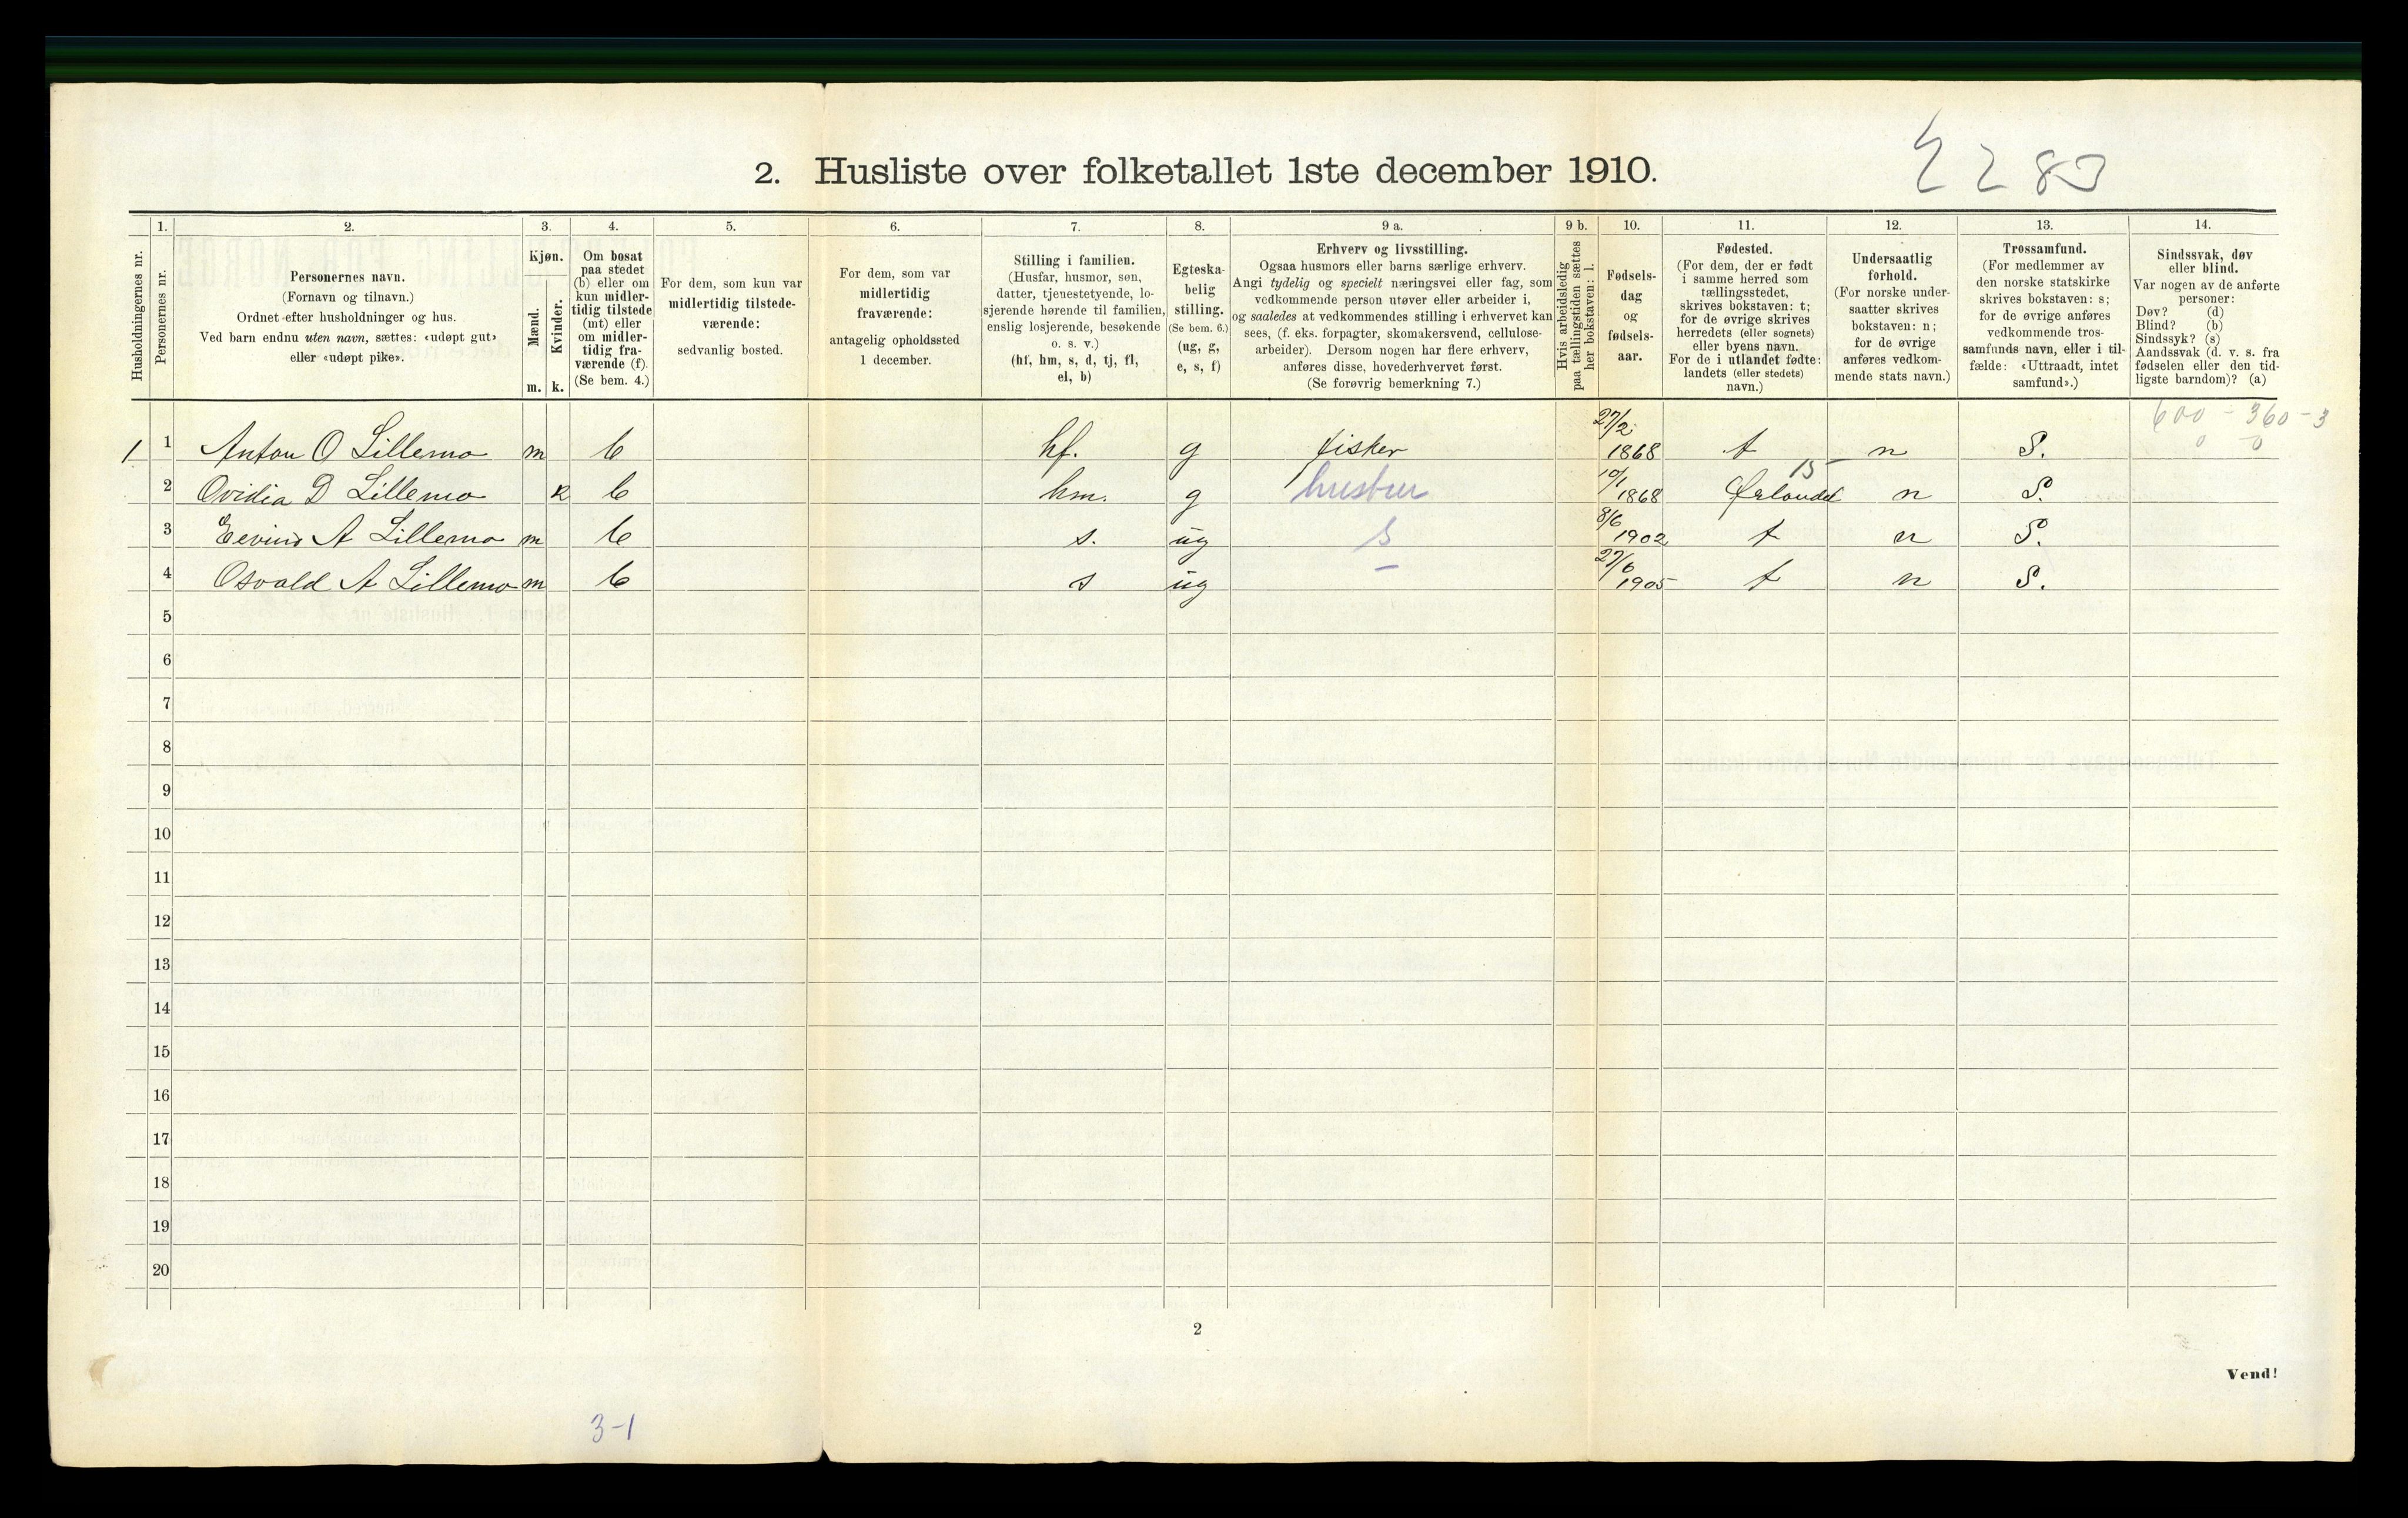 2. Husliste over folketallet 1ste december 1910.
2283
1. 2. 3. 4. 5. 6. 7. 8. 9 a. 9 b. 10. 11. 12. 13. 14.
Husholdningernes nr.
Personernes nr.
Personernes navn.
(Fornavn og tilnavn.)
Ordnet efter husholdninger og hus.
Ved barn endnu uten navn, sættes: «udøpt gut»
eller «udøpt pike».
Kjøn.
Mænd.
Kvinder.
m. k.
Om bosat
paa stedet
(b) eller om
kun midler-
tidig tilstede
(mt) eller
om midler-
tidig fra-
værende (f).
(Se bem. 4.)
For dem, som kun var
midlertidig tilstede-
værende:
sedvanlig bosted.
For dem, som var
midlertidig
fraværende:
antagelig opholdssted
1 december.
Stilling i familien.
(Husfar, husmor, søn,
datter, tjenestetyende, lo-
sjerende hørende til familien,
enslig losjerende, besøkende
o. s. v.)
(hf, hm, s, d, tj, fl,
el, b)
Egteska-
belig
stilling.
(Se bem. 6.)
(ug, g,
e, s, f)
Erhverv og livsstilling.
Ogsaa husmors eller barns særlige erhverv.
Angi tydelig og specielt næringsvei eller fag, som
vedkommende person utøver eller arbeider i,
og saaledes at vedkommendes stilling i erhvervet kan
sees, (f. eks. forpagter, skomakersvend, cellulose-
arbeider). Dersom nogen har flere erhverv,
anføres disse, hovederhvervet først.
(Se forøvrig bemerkning 7.)
Hvis arbeidsledig
paa tællingstiden sættes
her bokstaven: l.
Fødsels-
dag
og
fødsels-
aar.
Fødested.
(For dem, der er født
i samme herred som
tællingsstedet,
skrives bokstaven: t;
for de øvrige skrives
herredets (eller sognets)
eller byens navn.
For de i utlandet fødte:
landets (eller stedets)
navn.)
Undersaatlig
forhold.
(For norske under-
saatter skrives
bokstaven: n;
for de øvrige
anføres vedkom-
mende stats navn.)
Trossamfund.
(For medlemmer av
den norske statskirke
skrives bokstaven: s;
for de øvrige anføres
vedkommende tros-
samfunds navn, eller i til-
fælde: «Uttraadt, intet
samfund».)
Sindssvak, døv
eller blind.
Var nogen av de anførte
personer:
Døv? (d)
Blind? (b)
Sindssyk? (s)
Aandssvak (d. v. s. fra
fødselen eller den tid-
ligste barndom)? (a)
600 - 360 - 3
0 0
1 1 Anton O Lillemo m b hf. g fisker 27/2 1868 t n S.
15
2 Ovidia D Lillemo k b hm. g hustru 10/1 1868 Ørlandet n S.
3 Eevind A Lillemo m b s. ug s 8/6 1902 t n S.
4 Osvald A Lillemo m b s ug – 27/6 1905 t n S.
5
6
7
8
9
10
11
12
13
14
15
16
17
18
19
20
2
Vend!
3-1